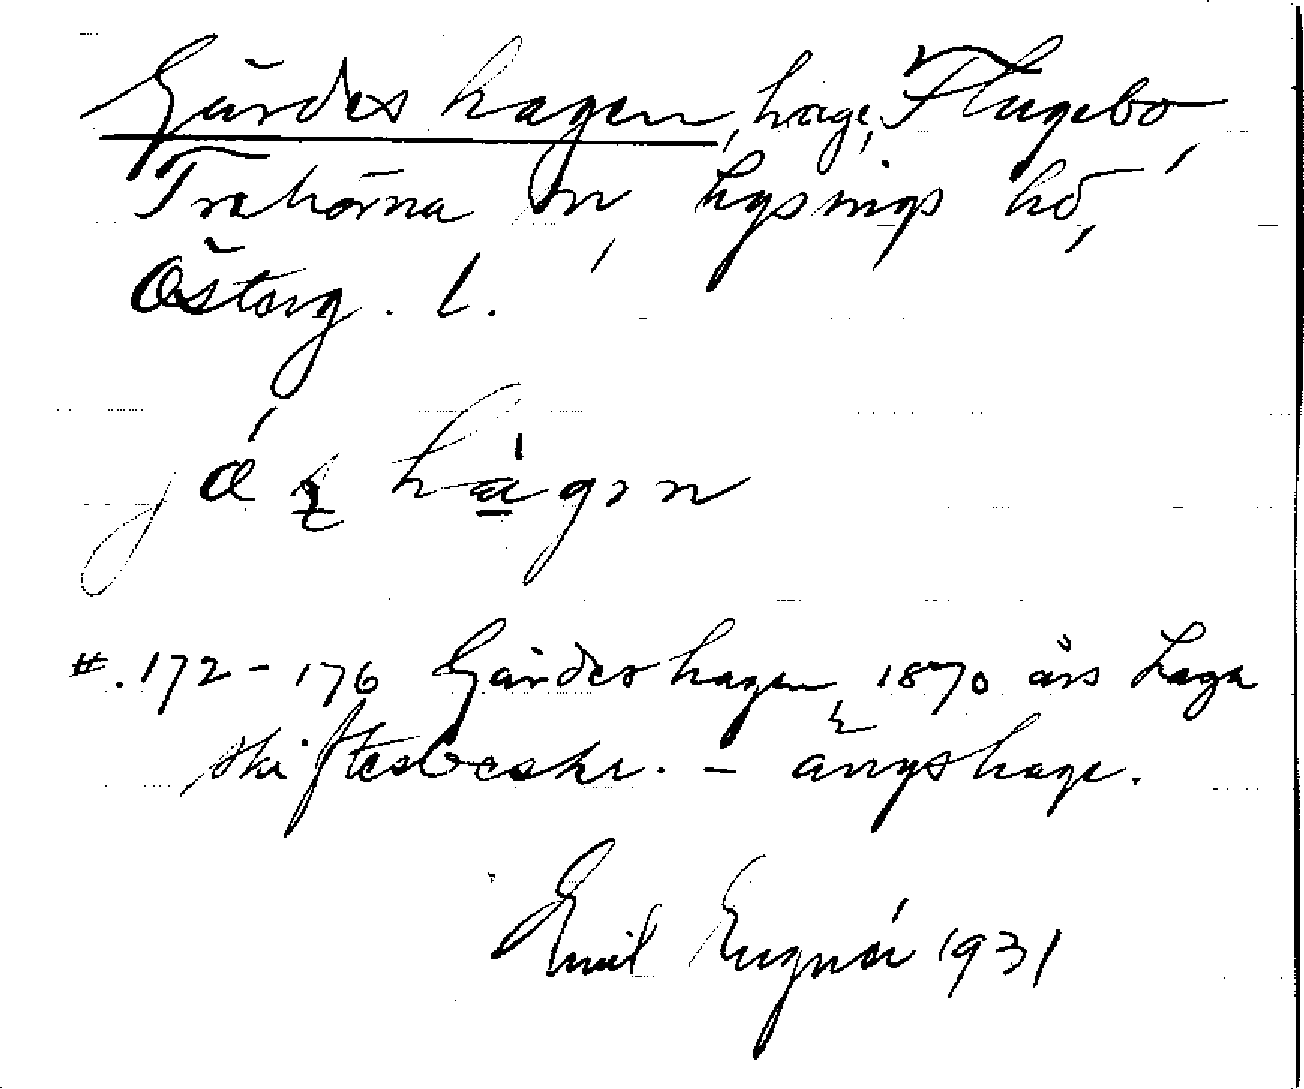 Gärdeshagen, hage, Flugebo,
Trehörna sn, Lysings hd,
Österg. l.
hagen
#. 172-176 Gärdeshagen 1870 års Laga
skiftesbeskr. - ängshage.
Emil 1931